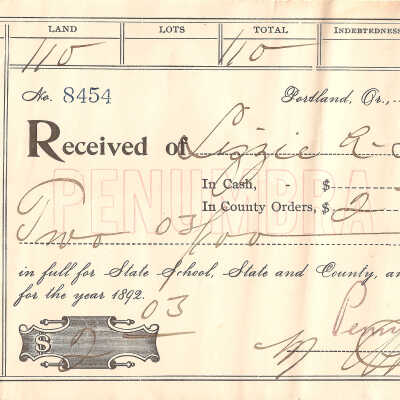 LAND LOTS TOTAL INDEBTEDNESS
110 110
No. 8454 Portland, Or.,
Received of Lizzie A
In Cash, - $
In County Orders, $ 2
PENUMBRA
Two 03/100
in full for State School, State and County, an
for the year 1892.
$ 2 03
Penu